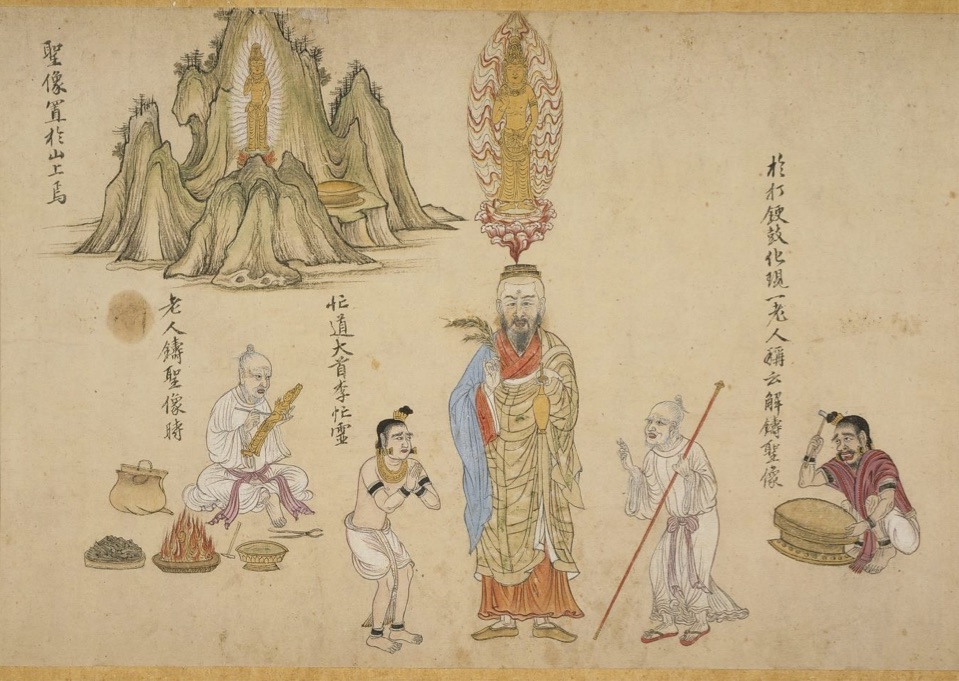 於打鼓化現一老人稱云解鑄聖像
忙道大首李忙靈
老人鑄聖像時
聖像置於山上焉